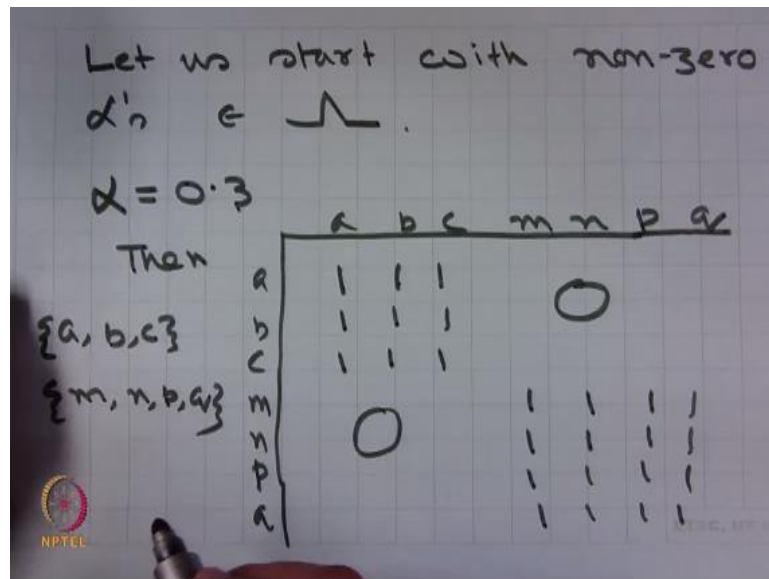 Let us start with non-zero
α's ∈ _Λ_.
α = 0.3
Then
{a, b, c}
{m, n, p, q}
a b c m n p q
a 1 1 1 0
b 1 1 1
c 1 1 1
m 1 1 1 1
n 0 1 1 1 1
p 1 1 1 1
q 1 1 1 1
NPTEL